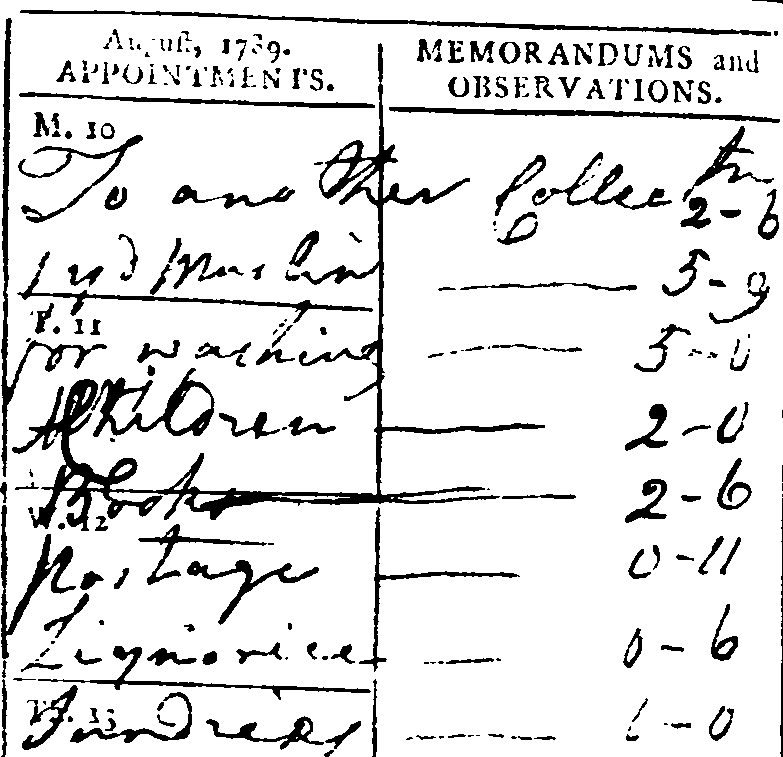 August, 1789.
APPOINTMENTS.
MEMORANDUMS and
OBSERVATIONS.
M. 10
To another Collectn
2-6
1 yd Muslin 5-9
T. 11
for washing 5-0
Children 2-0
Books 2-6
W. 12
Postage 0-11
Liquorice 0-6
Th. 13
Sundries 1-0